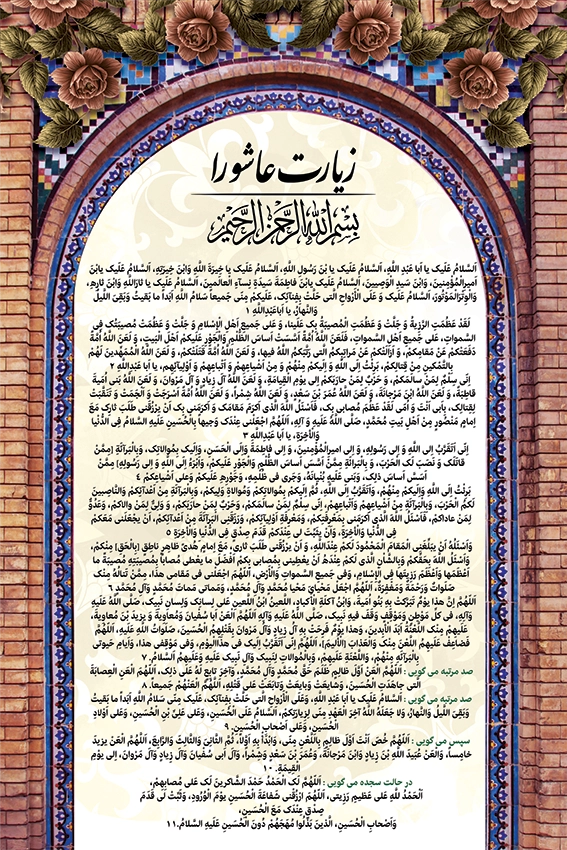 زیارت عاشورا
بِسْمِ اللهِ الرَّحْمنِ الرَّحيمِ
اَلسَّلامُ عَلَیک یا اَبا عَبْدِ اللَّهِ، اَلسَّلامُ عَلَیک یا بْنَ رَسُولِ اللَّهِ، اَلسَّلامُ عَلَیک یا خِیَرَةَ اللَّهِ وَابْنَ خِیَرَتِهِ، اَلسَّلامُ عَلَیک یابْنَ
اَمیرِالْمُؤْمِنینَ، وَابْنَ سَیدِ الْوَصِیینَ، اَلسَّلامُ عَلَیک یابْنَ فاطِمَةَ سَیدَةِ نِسآءِ الْعالَمینَ، اَلسَّلامُ عَلَیک یا ثارَاللَّهِ وَابْنَ ثارِهِ،
وَالْوِتْرَالْمَوْتُورَ، اَلسَّلامُ عَلَیک وَ عَلَی الْأَرْواحِ الَّتی حَلَّتْ بِفِنآئِک، عَلَیکمْ مِنّی جَمیعاً سَلامُ اللَّهِ اَبَداً ما بَقیتُ وَبَقِی اللَّیلُ
وَالنَّهارُ، یا اَباعَبْدِاللَّهِ ۱
لَقَدْ عَظُمَتِ الرَّزِیةُ وَ جَلَّتْ وَ عَظُمَتِ الْمُصیبَةُ بِک عَلَینا، وَ عَلی جَمیعِ اَهْلِ الْإِسْلامِ وَ جَلَّتْ وَ عَظُمَتْ مُصیبَتُک فِی
السَّمواتِ، عَلی جَمیعِ اَهْلِ السَّمواتِ، فَلَعَنَ اللَّهُ اُمَّةً اَسَّسَتْ اَساسَ الظُّلْمِ وَالْجَوْرِ عَلَیکمْ اَهْلَ الْبَیتِ، وَ لَعَنَ اللَّهُ اُمَّةً
دَفَعَتْکمْ عَنْ مَقامِکمْ، وَ اَزالَتْکمْ عَنْ مَراتِبِکمُ الَّتی رَتَّبَکمُ اللَّهُ فیها، وَ لَعَنَ اللَّهُ اُمَّةً قَتَلَتْکمْ، وَ لَعَنَ اللَّهُ الْمُمَهِّدینَ لَهُمْ
بِالتَّمْکینِ مِنْ قِتالِکمْ، بَرِئْتُ اِلَی اللَّهِ وَ اِلَیکمْ مِنْهُمْ وَ مِنْ اَشْیاعِهِمْ وَ اَتْباعِهِمْ وَ اَوْلِیائِهِم، یا اَبا عَبْدِاللَّهِ ۲
اِنّی سِلْمٌ لِمَنْ سالَمَکمْ، وَ حَرْبٌ لِمَنْ حارَبَکمْ اِلی یوْمِ الْقِیامَةِ، وَ لَعَنَ اللَّهُ آلَ زِیادٍ وَ آلَ مَرْوانَ، وَ لَعَنَ اللَّهُ بَنی اُمَیةَ
قاطِبَةً، وَ لَعَنَ اللَّهُ ابْنَ مَرْجانَةَ، وَ لَعَنَ اللَّهُ عُمَرَ بْنَ سَعْدٍ، وَ لَعَنَ اللَّهُ شِمْراً، وَ لَعَنَ اللَّهُ اُمَّةً اَسْرَجَتْ وَ اَلْجَمَتْ وَ تَنَقَّبَتْ
لِقِتالِک، بِاَبی اَنْتَ وَ اُمّی لَقَدْ عَظُمَ مُصابی بِک، فَاَسْئَلُ اللَّهَ الَّذی اَکرَمَ مَقامَک وَ اَکرَمَنی بِک اَنْ یرْزُقَنی طَلَبَ ثارِک مَعَ
اِمامٍ مَنْصُورٍ مِنْ اَهْلِ بَیتِ مُحَمَّدٍ، صَلَّی اللَّهُ عَلَیهِ وَ آلِهِ، اَللّهُمَّ اجْعَلْنی عِنْدَک وَجیهاً بِالْحُسَینِ عَلَیهِ السَّلامُ فِی الدُّنْیا
وَ الْأخِرَةِ، یا اَبا عَبْدِاللَّهِ ۳
اِنّی اَتَقَرَّبُ اِلَی اللَّهِ وَ اِلی رَسُولِهِ، وَ اِلی اَمیرِالْمُؤْمِنینَ، وَ اِلی فاطِمَةَ وَاِلَی الْحَسَنِ، وَاِلَیک بِمُوالاتِک، وَبِالْبَرآئَةِ (مِمَّنْ
قاتَلَک وَ نَصَبَ لَک الْحَرْبَ، وَ بِالْبَرائَةِ مِمَّنْ اَسَّسَ اَساسَ الظُّلْمِ وَالْجَوْرِ عَلَیکمْ، وَ اَبْرَءُ اِلَی اللَّهِ وَ اِلی رَسُولِهِ) مِمَّنْ
اَسَسَّ اَساسَ ذلِک، وَبَنی عَلَیهِ بُنْیانَهُ، وَجَری فی ظُلْمِهِ، وَجَوْرِهِ عَلَیکمْ وَعَلی اَشْیاعِکمْ ۴
بَرِئْتُ اِلَی اللَّهِ وَاِلَیکمْ مِنْهُمْ، وَاَتَقَرَّبُ اِلَی اللَّهِ، ثُمَّ اِلَیکمْ بِمُوالاتِکمْ وَمُوالاةِ وَلِیکمْ، وَبِالْبَرآئَةِ مِنْ اَعْدآئِکمْ وَالنَّاصِبینَ
لَکمُ الْحَرْبَ، وَبِالْبَرآئَةِ مِنْ اَشْیاعِهِمْ وَاَتْباعِهِمْ، اِنّی سِلْمٌ لِمَنْ سالَمَکمْ، وَحَرْبٌ لِمَنْ حارَبَکمْ، وَ وَلِی لِمَنْ والاکمْ، وَعَدُوٌّ
لِمَنْ عاداکمْ، فَاَسْئَلُ اللَّهَ الَّذی اَکرَمَنی بِمَعْرِفَتِکمْ، وَمَعْرِفَةِ اَوْلِیآئِکمْ، وَرَزَقَنِی الْبَرآئَةَ مِنْ اَعْدآئِکمْ، اَنْ یجْعَلَنی مَعَکمْ
فِی الدُّنْیا وَالْأخِرَةِ، وَاَنْ یثَبِّتَ لی عِنْدَکمْ قَدَمَ صِدْقٍ فِی الدُّنْیا وَالْأخِرَةِ ۵
وَاَسْئَلُهُ اَنْ یبَلِّغَنِی الْمَقامَ الْمَحْمُودَ لَکمْ عِنْدَاللَّهِ، وَ اَنْ یرْزُقَنی طَلَبَ ثاری، مَعَ اِمامٍ هُدی ظاهِرٍ ناطِقٍ (بِالْحَقِ) مِنْکمْ،
وَاَسْئَلُ اللَّهَ بِحَقِّکمْ وَبِالشَّأْنِ الَّذی لَکمْ عِنْدَهُ اَنْ یعْطِینی بِمُصابی بِکمْ اَفْضَلَ ما یعْطی مُصاباً بِمُصیبَتِهِ مُصیبَةً ما
اَعْظَمَها وَاَعْظَمَ رَزِیتَها فِی الْإِسْلامِ، وَفی جَمیعِ السَّمواتِ وَالْأَرْضِ، اَللّهُمَّ اجْعَلْنی فی مَقامی هذا، مِمَّنْ تَنالُهُ مِنْک
صَلَواتٌ وَرَحْمَةٌ وَمَغْفِرَةٌ، اَللّهُمَّ اجْعَلْ مَحْیای مَحْیا مُحَمَّدٍ وَ آلِ مُحَمَّدٍ، وَمَماتی مَماتَ مُحَمَّدٍ وَ آلِ مُحَمَّدٍ ۶
اَللّهُمَّ اِنَّ هذا یوْمٌ تَبَرَّکتْ بِهِ بَنُو اُمَیةَ، وَابْنُ آکلَةِ الْأَکبادِ، اللَّعینُ ابْنُ اللَّعینِ عَلی لِسانِک وَلِسانِ نَبِیک، صَلَّی اللَّهُ عَلَیهِ
وَآلِهِ، فی کلِّ مَوْطِنٍ وَمَوْقِفٍ وَقَفَ فیهِ نَبِیک، صَلَّی اللَّهُ عَلَیهِ وَآلِهِ اَللّهُمَّ الْعَنْ اَبا سُفْیانَ وَمُعاوِیةَ وَ یزیدَ بْنَ مُعاوِیةَ،
عَلَیهِمْ مِنْک اللَّعْنَةُ اَبَدَ الْأبِدینَ، وَهذا یوْمٌ فَرِحَتْ بِهِ آلُ زِیادٍ وَآلُ مَرْوانَ بِقَتْلِهِمُ الْحُسَینَ، صَلَواتُ اللَّهِ عَلَیهِ، اَللّهُمَّ
فَضاعِفْ عَلَیهِمُ اللَّعْنَ مِنْک وَالْعَذابَ (الْأَلیمَ)، اَللّهُمَّ اِنّی اَتَقَرَّبُ اِلَیک فی هذَاالْیوْمِ، وَفی مَوْقِفی هذا، وَاَیامِ حَیوتی
بِالْبَرآئَةِ مِنْهُمْ، وَاللَّعْنَةِ عَلَیهِمْ، وَبِالْمُوالاتِ لِنَبِیک وَآلِ نَبِیک عَلَیهِ وَعَلَیهِمُ اَلسَّلامُ. ۷
صد مرتبه می گویی : اَللّهُمَّ الْعَنْ اَوَّلَ ظالِمٍ ظَلَمَ حَقَّ مُحَمَّدٍ وَآلِ مُحَمَّدٍ، وَآخِرَ تابِعٍ لَهُ عَلی ذلِک، اَللّهُمَّ الْعَنِ الْعِصابَةَ
الَّتی جاهَدَتِ الْحُسَینَ، وَشایعَتْ وَبایعَتْ وَتابَعَتْ عَلی قَتْلِهِ، اَللّهُمَّ الْعَنْهُمْ جَمیعاً. ۸
صد مرتبه می گویی : اَلسَّلامُ عَلَیک یا اَبا عَبْدِ اللَّهِ، وَعَلَی الْأَرْواحِ الَّتی حَلَّتْ بِفِنآئِک، عَلَیک مِنّی سَلامُ اللَّهِ اَبَداً ما بَقیتُ
وَبَقِی اللَّیلُ وَالنَّهارُ، وَلا جَعَلَهُ اللَّهُ آخِرَ الْعَهْدِ مِنّی لِزِیارَتِکمْ، اَلسَّلامُ عَلَی الْحُسَینِ، وَعَلی عَلِی بْنِ الْحُسَینِ، وَعَلی اَوْلادِ
الْحُسَینِ، وَعَلی اَصْحابِ الْحُسَینِ. ۹
سپس می گویی : اَللّهُمَّ خُصَّ اَنْتَ اَوَّلَ ظالِمٍ بِاللَّعْنِ مِنّی، وَابْدَأْ بِهِ اَوَّلاً، ثُمَّ الثَّانِی وَالثَّالِثَ وَالرَّابِعَ، اَللّهُمَّ الْعَنْ یزیدَ
خامِساً، وَالْعَنْ عُبَیدَ اللَّهِ بْنَ زِیادٍ وَابْنَ مَرْجانَةَ، وَعُمَرَ بْنَ سَعْدٍ وَشِمْراً، وَآلَ اَبی سُفْیانَ وَآلَ زِیادٍ وَآلَ مَرْوانَ، اِلی یوْمِ
الْقِیمَةِ. ۱۰
در حالت سجده می گویی : اَللّهُمَّ لَک الْحَمْدُ حَمْدَ الشَّاکرینَ لَک عَلی مُصابِهِمْ،
اَلْحَمْدُ لِلَّهِ عَلی عَظیمِ رَزِیتی، اَللّهُمَّ ارْزُقْنی شَفاعَةَ الْحُسَینِ یوْمَ الْوُرُودِ، وَثَبِّتْ لی قَدَمَ
صِدْقٍ عِنْدَک مَعَ الْحُسَینِ،
وَاَصْحابِ الْحُسَینِ، اَلَّذینَ بَذَلُوا مُهَجَهُمْ دُونَ الْحُسَینِ عَلَیهِ السَّلامُ.۱۱